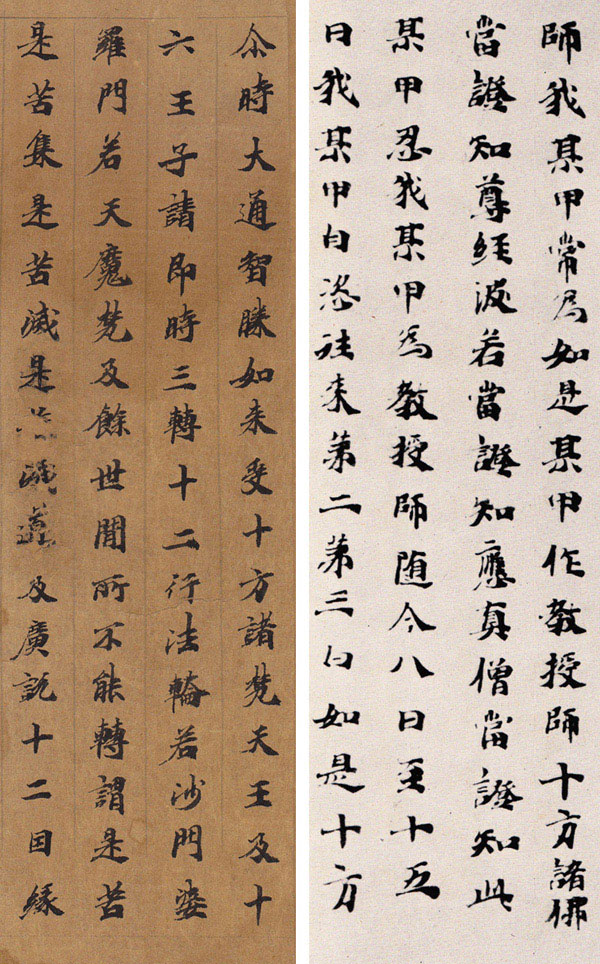 師我某甲常為如是某甲作教授師十方諸佛
當證知尊經波若當證知應真僧當證知此
某甲忍我某甲為教授師随今八日至十五
日我某甲自恣往来苐二苐三白如是十方
尒時大通智勝如来受十方諸梵天王及十
六王子請即時三轉十二行法輪若沙門婆
羅門若天魔梵及餘世間所不能轉謂是苦
是苦集是苦滅是苦滅道及廣說十二因縁